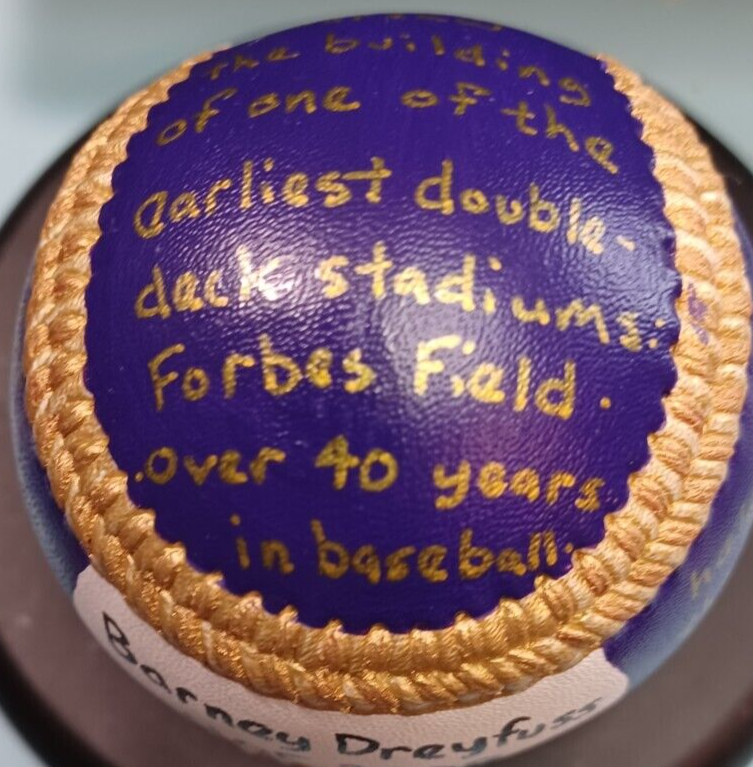 the building
of one of the
earliest double-
deck stadiums:
Forbes Field.
.over 40 years
in baseball.
Barney Dreyfuss